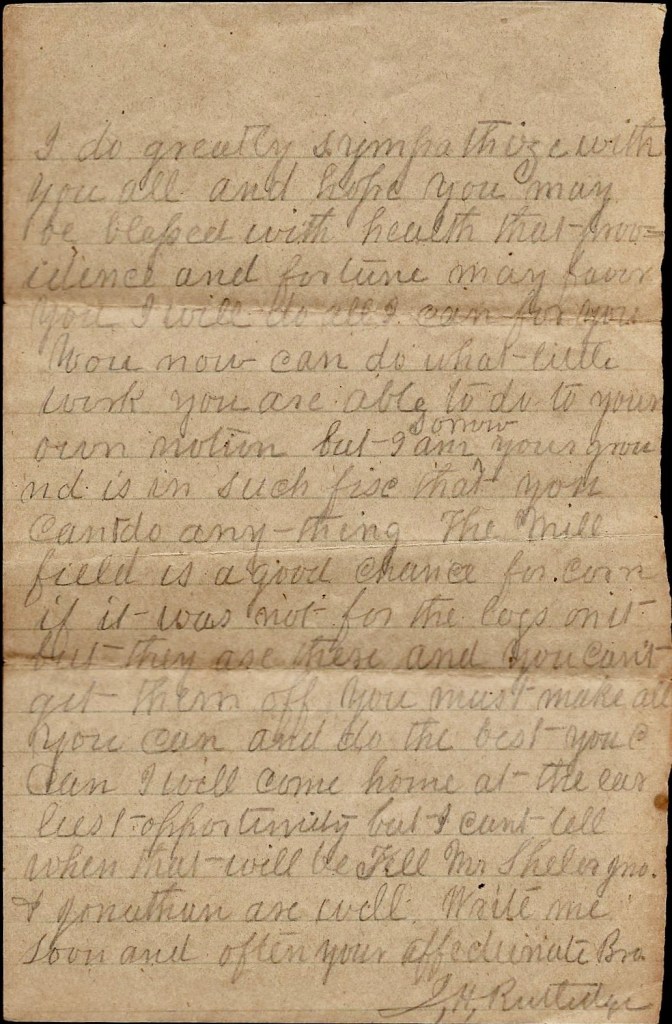 I do greatly sympathize with
you all and hope you may
be blessed with health that prov=
idence and fortune may favor
you I will do all I can for you
You now can do what little
work you are able to do to your
own notion but I am sorrow your grou
nd is in such fisc that you
Cant do any-thing The Mill
field is a good chance for corn
if it was not for the logs on it
but they are there and you can't
get them off you must make all
you can and do the best you
Can I will come home at the ear
liest opportunity but I cant tell
when that will be Tell Mr Shelor Jno.
& Jonathan are well. Write me
soon and often your affectionate Bro
J, H, Rutledge